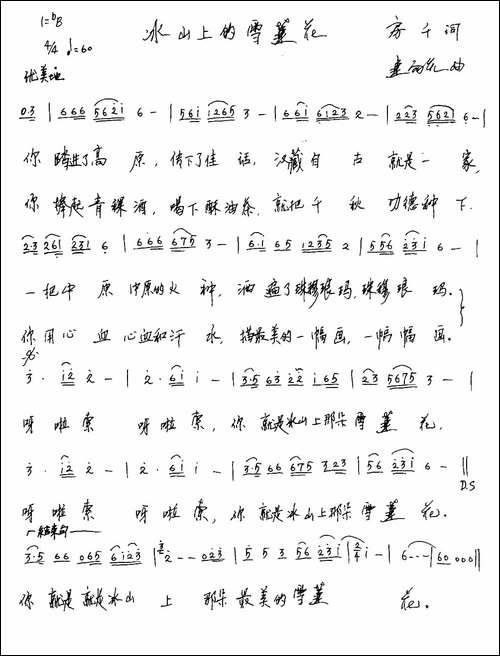 1=ᵇB
冰山上的雪莲花
房千词
4/4 ♩=60
曲
优美地
0·3 | 6 6 6 5 6 2 1 6 – | 5 6 1 1 2 6 5 3 – | 6 6 1 6 1 2 3 2 – | 2 2 3 5 6 2 1 6 – |
你 踏进了高 原，传下了佳 话，汉藏自 古 就是一 家，
你 捧起青稞酒，喝下酥油茶，就把千 秋 功德种 下。
2·3 2 6 1 2 3 1 6 | 6 6 6 6 7 5 3 – | 6·1 6 5 1 2 3 5 2 | 5 5 6 2 3 1 6 – |
一把中 原 中原的火 种，洒遍了珠穆琅玛，珠穆琅 玛。
你用心 血 心血和汗 水，描最美的一幅画，一幅幅画。
3· 1 2 2 – | 2· 6 1 1 – | 3·5 6 3 2 2 1 6 5 | 2 3 5 6 7 5 3 – |
呀 啦 索 呀 啦 索，你 就是冰山上那朵雪莲 花，
3· 1 2 2 – | 2· 6 1 1 – | 3·5 6 6 6 7 5 3 2 3 | 5 6 2 3 1 6 – ||
D.S
呀 啦 索 呀 啦 索，你 就是冰山上那朵雪莲 花。
结束句
3·5 6 6 0 6 5 6 1 2 3 | 2 – – 0 2 3 | 5 5 3 5 6 2 3 1 | 2/4 1 – | 6 – – – | 6 0 0 0 ||
你 就是 就是冰山 上 那朵 最美的雪莲 花。